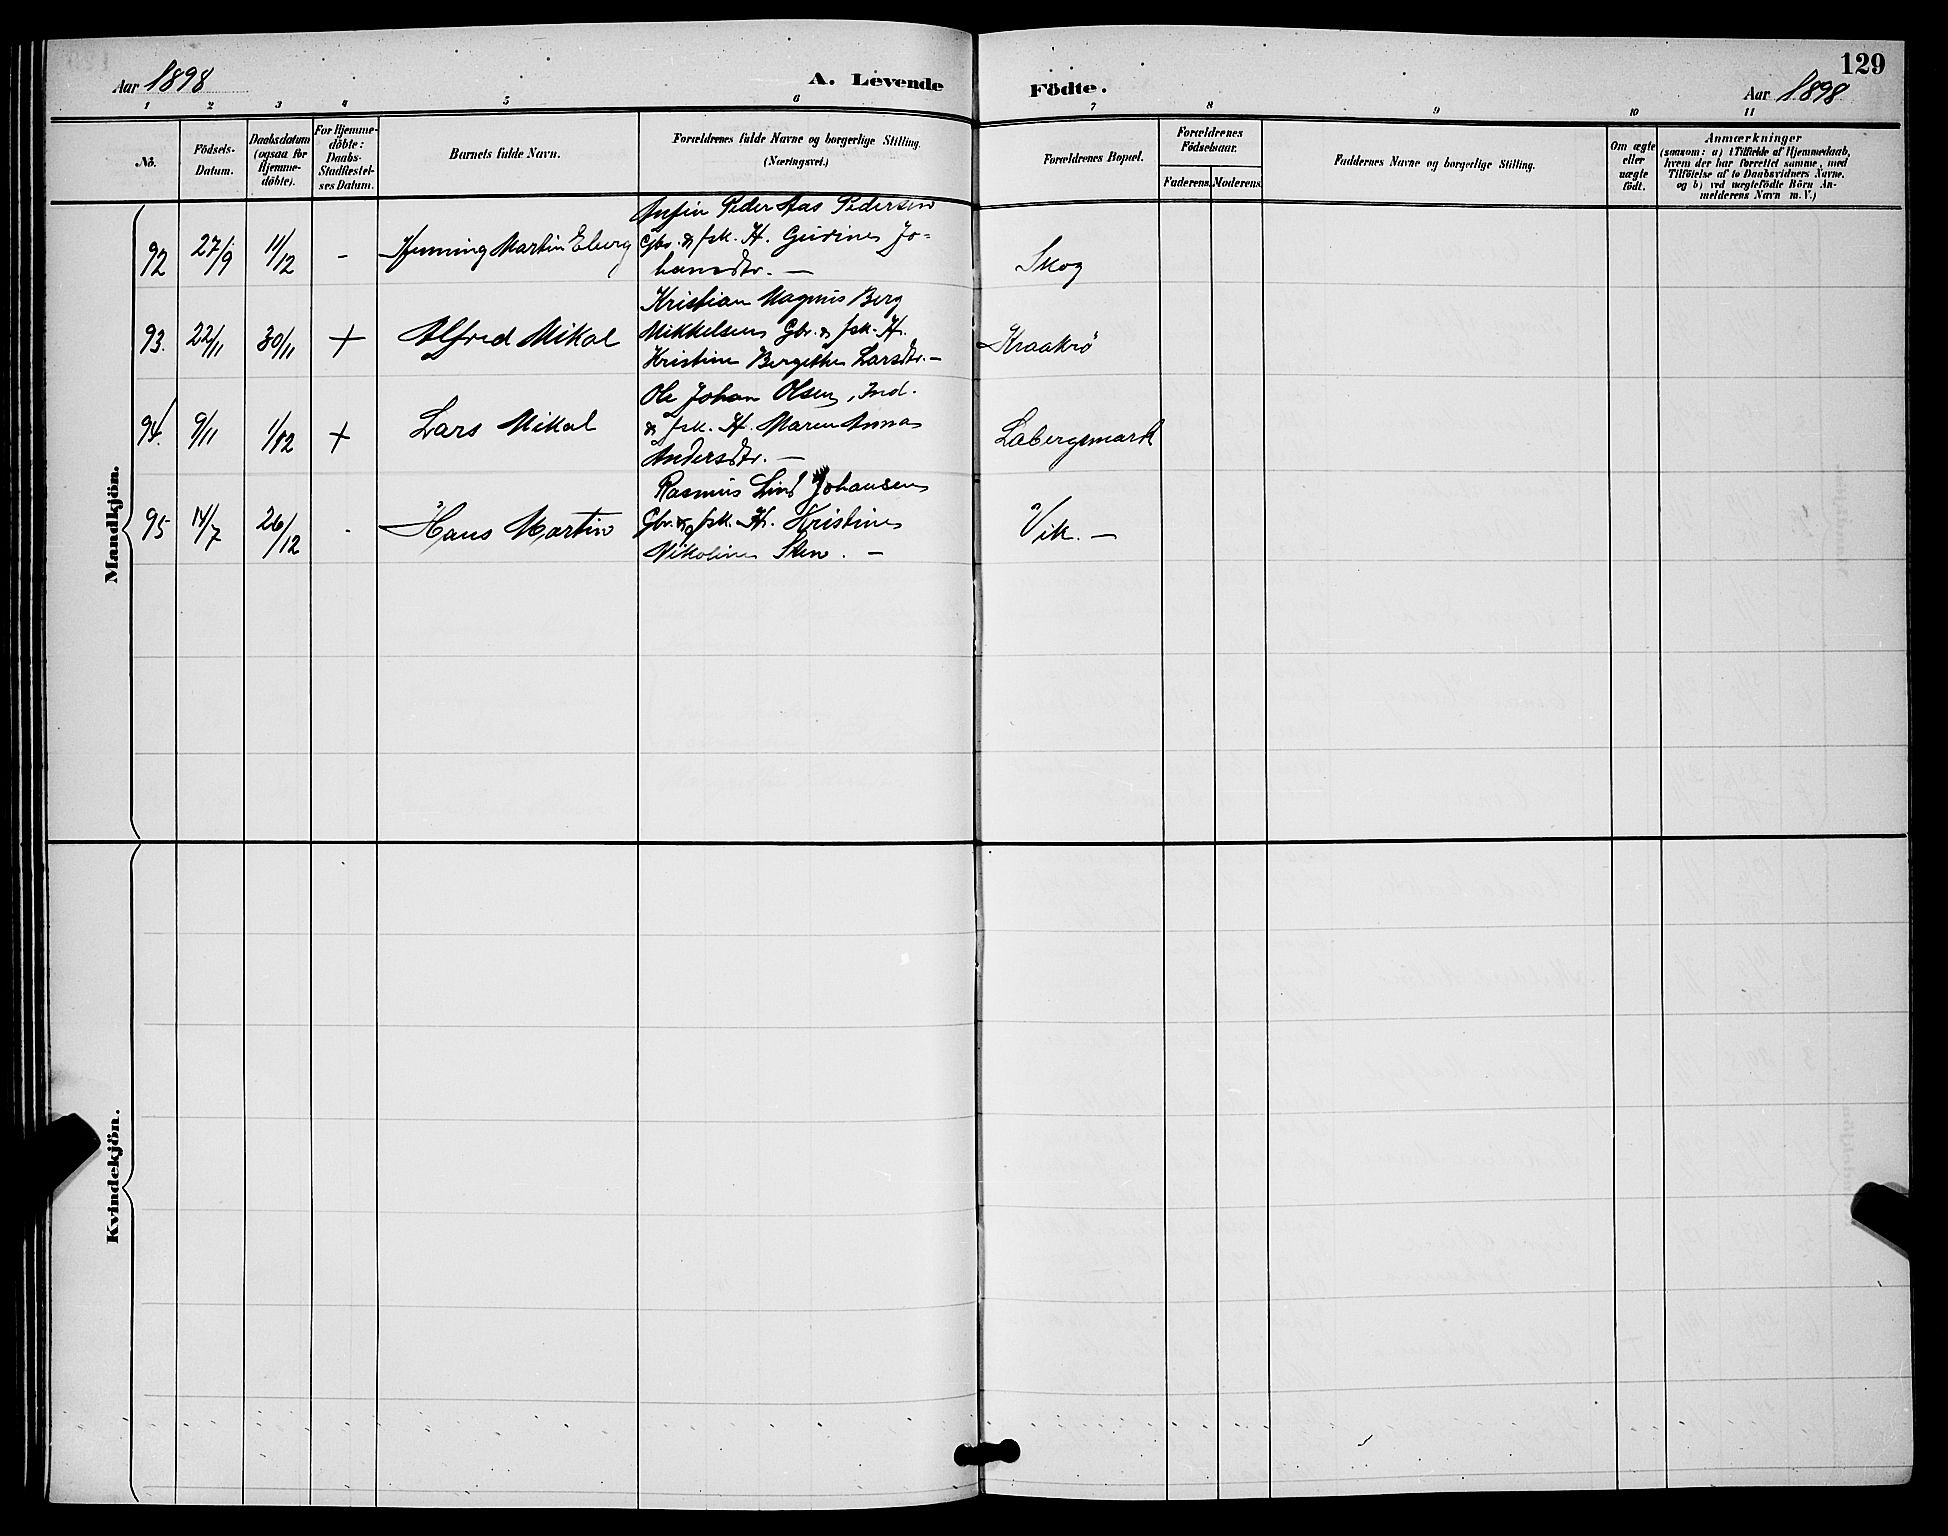 129
Aar 1898
A. Levende Födte.
Aar 1898
1 2 3 4 5 6 7 8 9 10 11
No.
Födsels-
Datum.
Daabsdatum
(ogsaa for
Hjemme-
döbte).
For Hjemme-
döbte:
Daabs-
Stadfæstel-
ses Datum.
Barnets fulde Navn.
Forældrenes fulde Navne og borgerlige Stilling.
(Næringsvei.)
Forældrenes Bopæl.
Forældrenes
Födselsaar.
Faderens. Moderens.
Faddernes Navne og borgerlige Stilling.
Om ægte
eller
uægte
födt.
Anmærkninger
(saasom: a) i Tilfælde af Hjemmedaab,
hvem der har forrettet samme, med
Tilföielse af to Daabsvidners Navne.
og b) ved uægtefödte Börn An-
melderens Navn m. V.)
Mandkjön.
92 27/9 11/12 - Henning Martin Eberg
Peder Aas Pedersen
Gbr. & fsk. H. Gurine Jo-
hansdtr. —
Skog
93. 22/11 30/11 + Alfred Mikal
Kristian Magnus Berg
Mikkelsen Gbr. & fsk. H.
Kristine Bergithe Larsdtr. —
Kraakrö
94. 9/11 1/12 + Lars Mikal
Ole Johan Olsen, Ind.
& fsk. H. Maren Anna
Andersdtr. —
Labergsmark
95 14/7 26/12 - Hans Martin
Rasmus Lind Johansen
Gbr. & fsk. H. Kristine
Nikoline Sten. —
Vik. —
Kvindekjön.